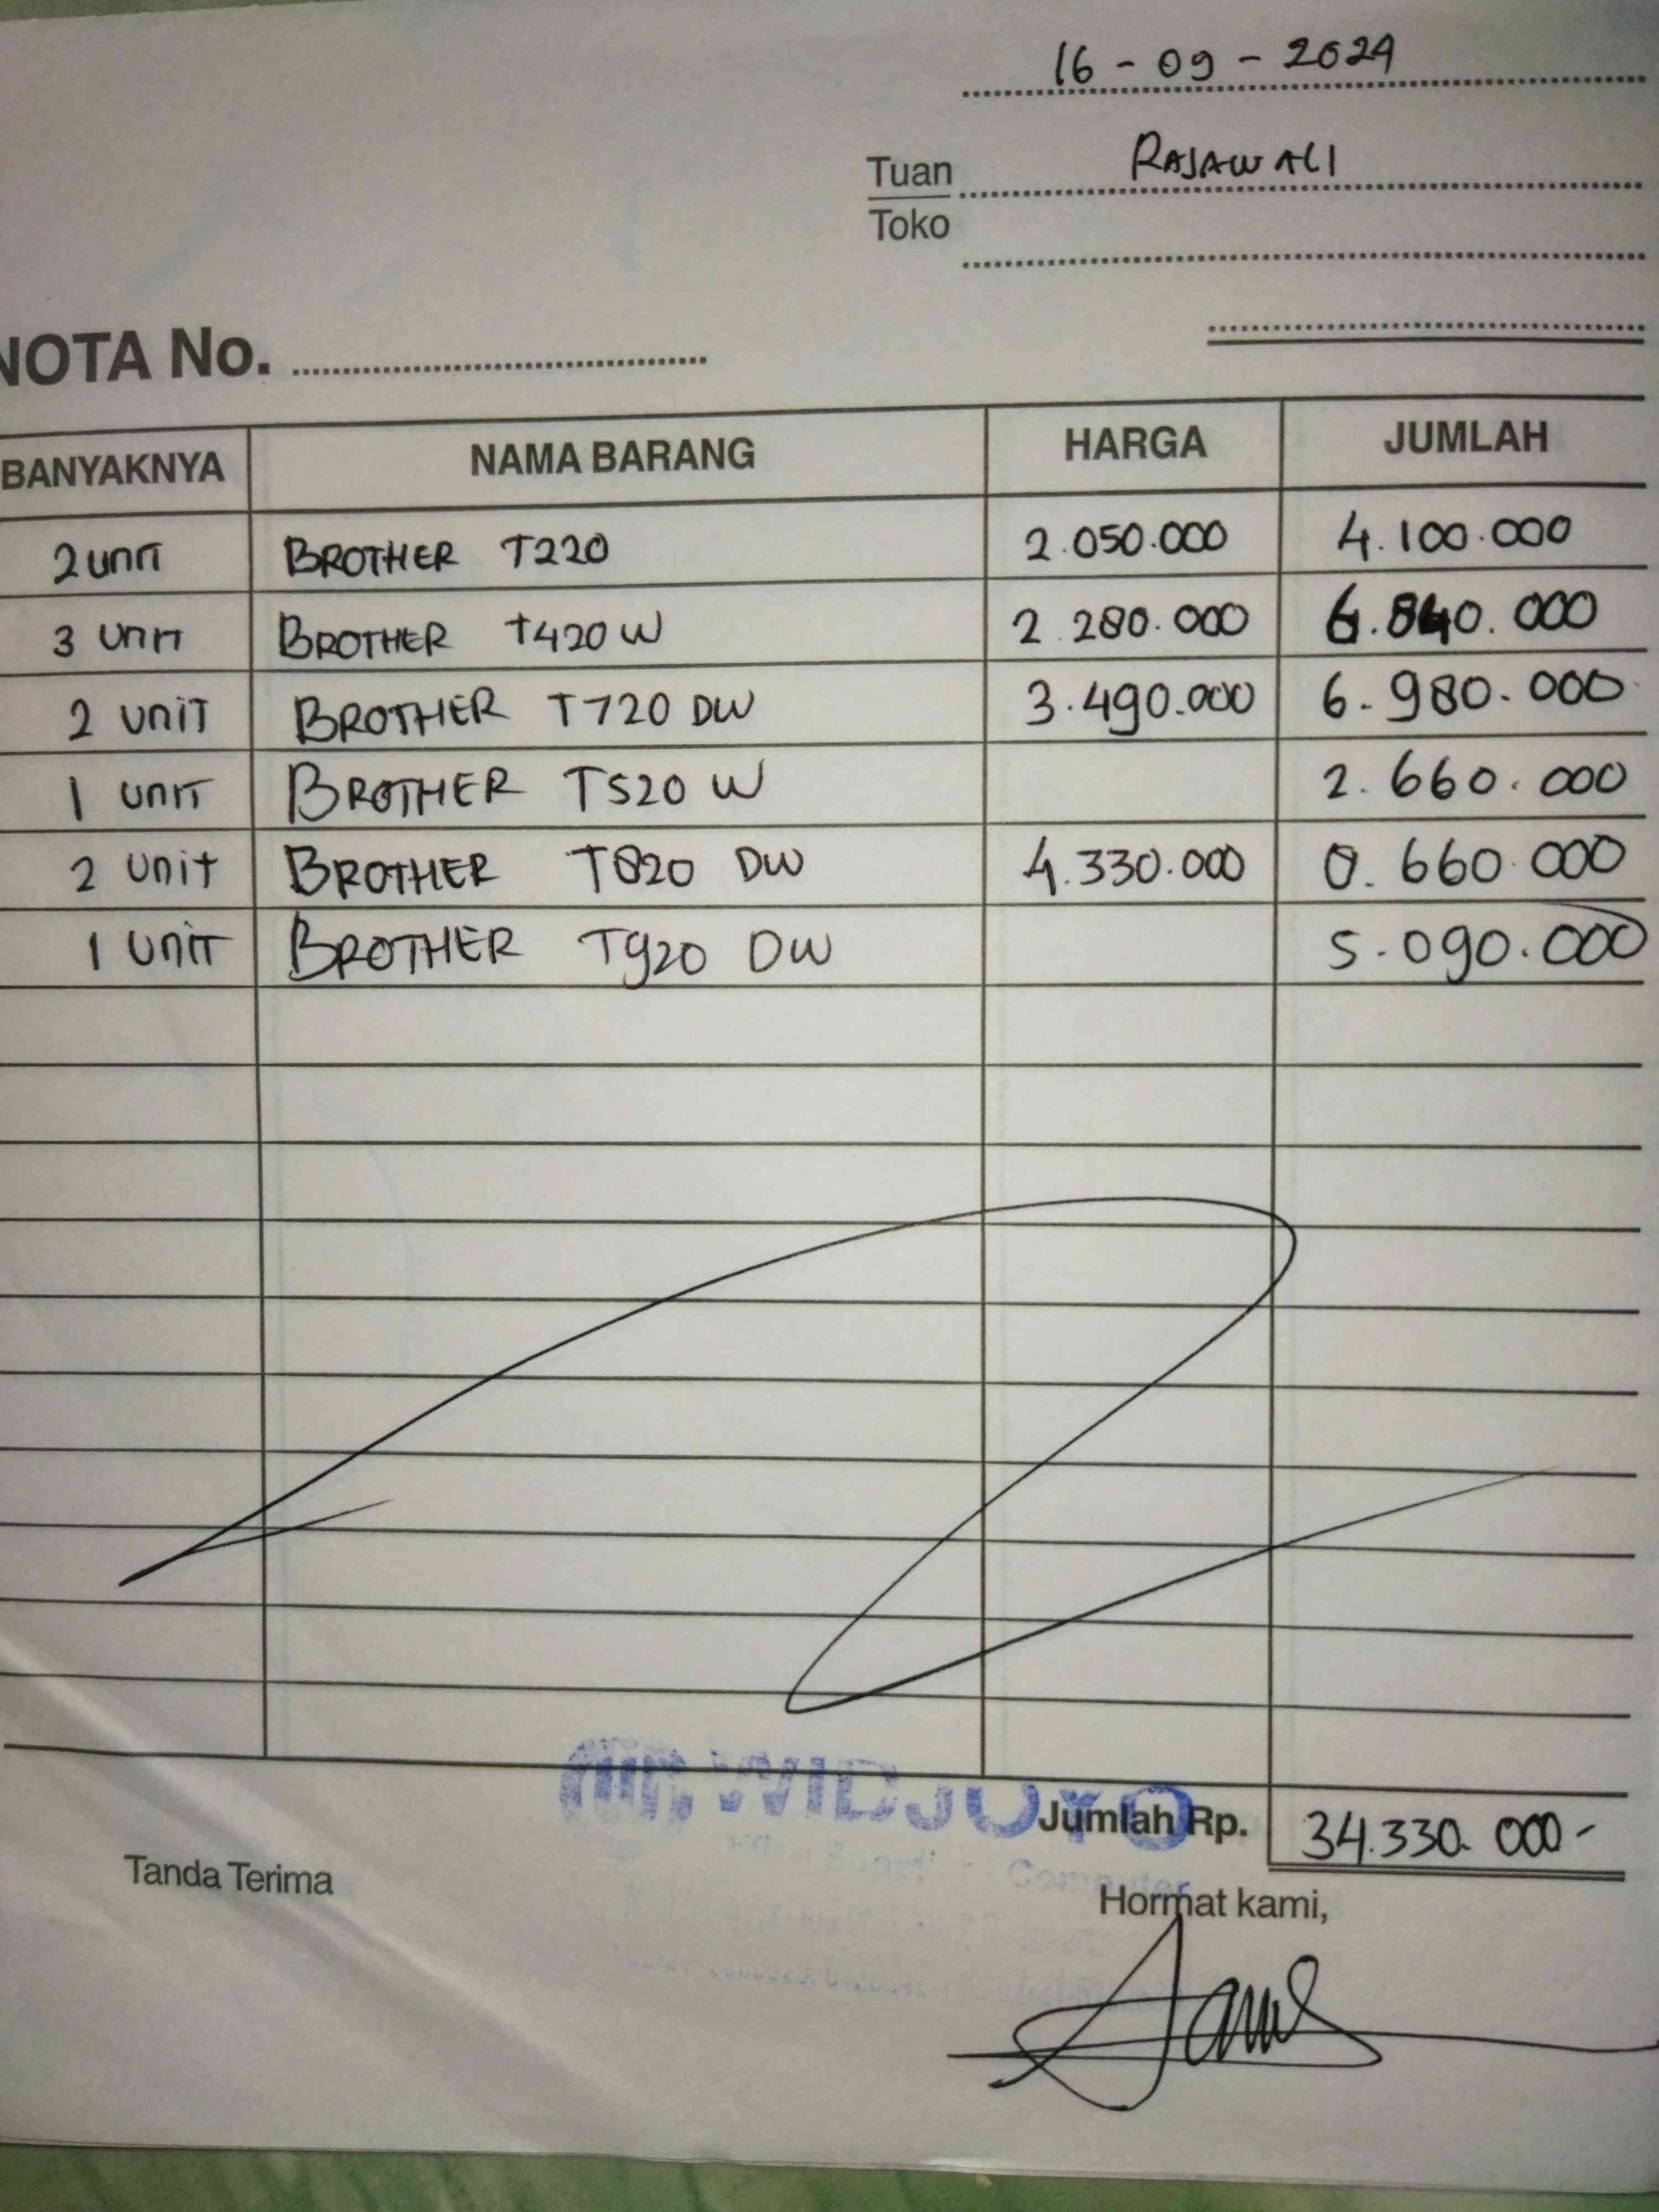 16 - 09 - 2024
Tuan RAJAWALI
Toko
NOTA No.
BANYAKNYA NAMA BARANG HARGA JUMLAH
2 unit BROTHER T220 2.050.000 4.100.000
3 unit BROTHER T420 W 2.280.000 6.840.000
2 unit BROTHER T720 DW 3.490.000 6.980.000
1 unit BROTHER T520 W 2.660.000
2 unit BROTHER T820 DW 4.330.000 8.660.000
1 unit BROTHER T920 DW 5.090.000
WIDJOYO
Jumlah Rp. 34.330.000-
Computer
Tanda Terima
Hormat kami,